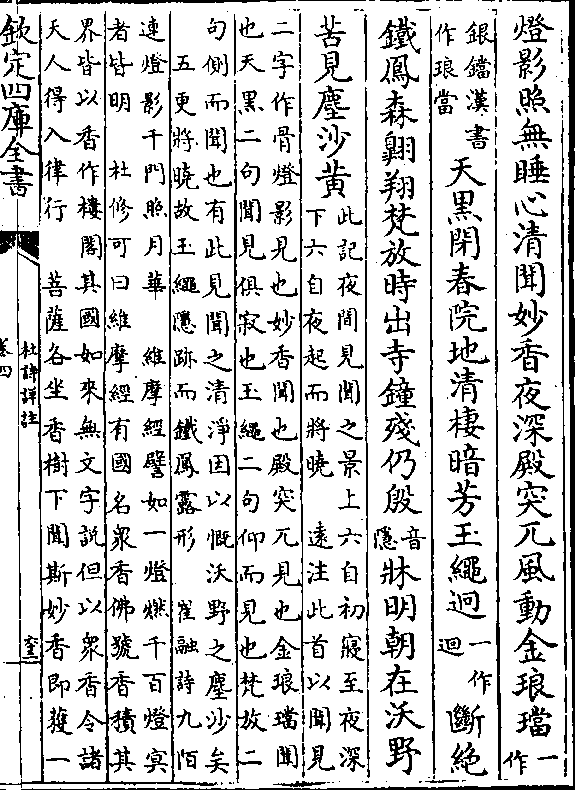 燈影照無睡心清聞妙香夜深殿突兀風動金琅璫一作
銀鐺漢書
作琅當
天黒閉春院地清棲暗芳玉繩迥一作
迴
斷絶
鐵鳳森翺翔梵放時出寺鐘殘仍殷音
隱
牀明朝在沃野
苦見塵沙黄
此記夜間見聞之景上六自初寢至夜深
下六自夜起而將曉 遠注此首以聞見
二字作骨燈影見也妙香聞也殿突兀見也金琅璫聞
也天黒二句聞見俱寂也玉繩二句仰而見也梵放二
句側而聞也有此見聞之清淨因以慨沃野之塵沙矣
五更將曉故玉繩隱跡而鐵鳳露形 崔融詩九陌
連燈影千門照月華 維摩經譬如一燈燃千百燈冥
者皆明 杜修可曰維摩經有國名衆香佛號香積其
界皆以香作樓閣其國如來無文字說但以衆香令諸
天人得入律行 菩薩各坐香樹下聞斯妙香即獲一
欽定四庫全書
杜詩詳註
卷四